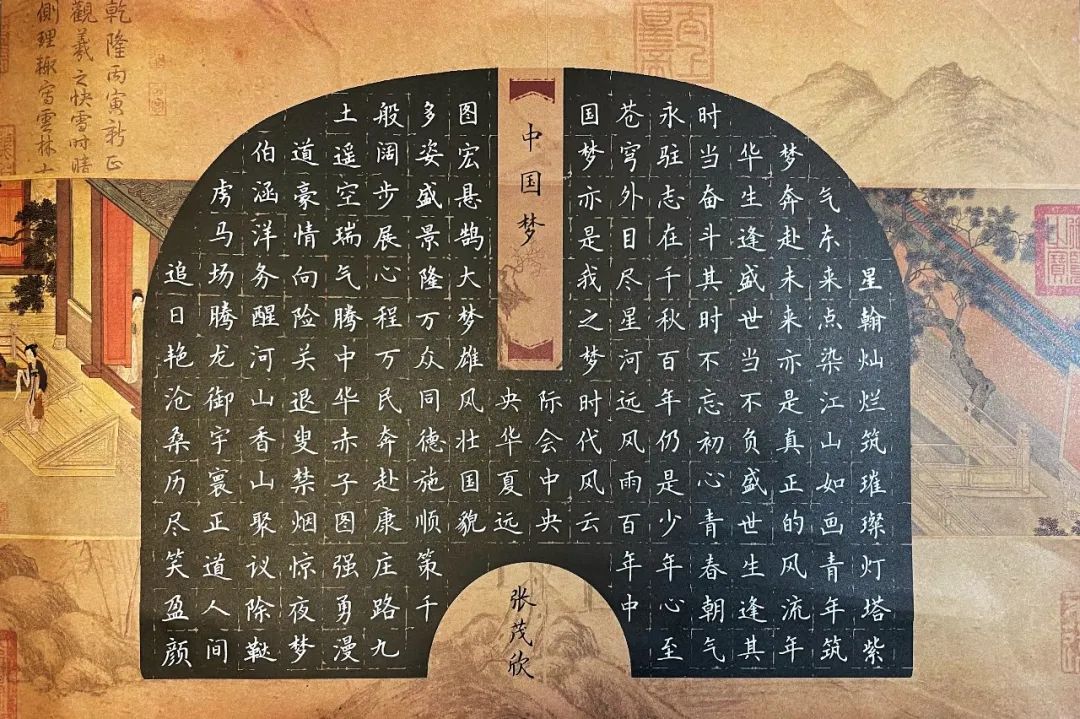 中国梦
星翰灿烂筑璀璨灯塔紫
气东来点染江山如画青年筑
梦奔赴未来亦是真正的风流年
华生逢盛世当不负盛世生逢其
时当奋斗其时不忘初心青春朝气
永驻志在千秋百年仍是少年心至
苍穹外目尽星河远风雨百年中
国梦亦是我之梦时代风云
际会中央
央华夏远
图宏悬鹄大梦雄风壮国貌
多姿盛景隆万众同德施顺策千
般阔步展心程万民奔赴康庄路九
土遥空瑞气腾中华赤子图强勇漫
道豪情向险关退叟禁烟惊夜梦
伯涵洋务醒河山香山聚议除鞑
虏马场腾龙御宇寰正道人间
追日艳沧桑历尽笑盈颜
张茂欣
乾隆丙寅新正
觀羲之快雪時晴
側理輙寫雲林
太上皇帝